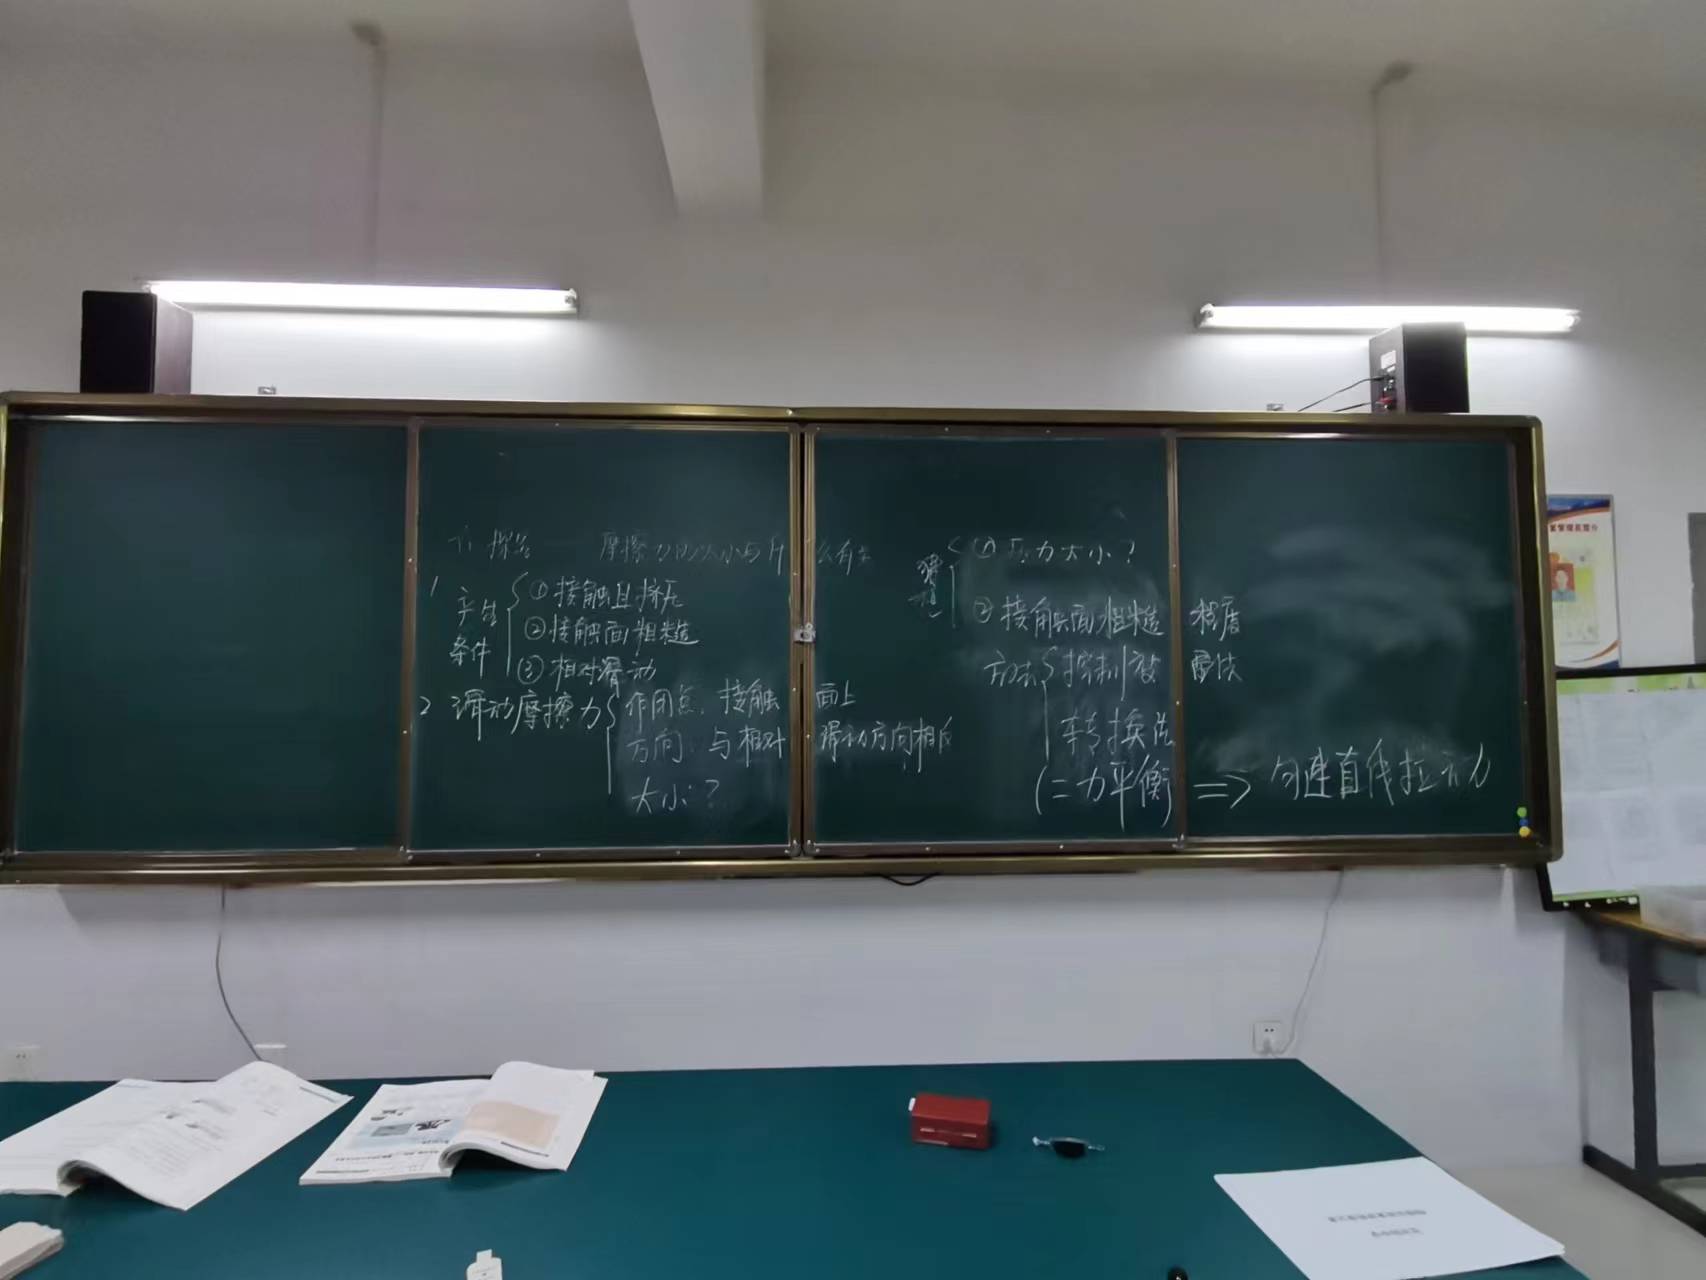 探究 摩擦力的大小与什么有关
1 产生条件
①接触且挤压
②接触面粗糙
③相对滑动
2 滑动摩擦力
作用点:接触面上
方向:与相对滑动方向相反
大小:?
猜想
①压力大小?
②接触面粗糙程度
方法 控制变量法
转换法
(二力平衡 ⇒ 匀速直线拉动